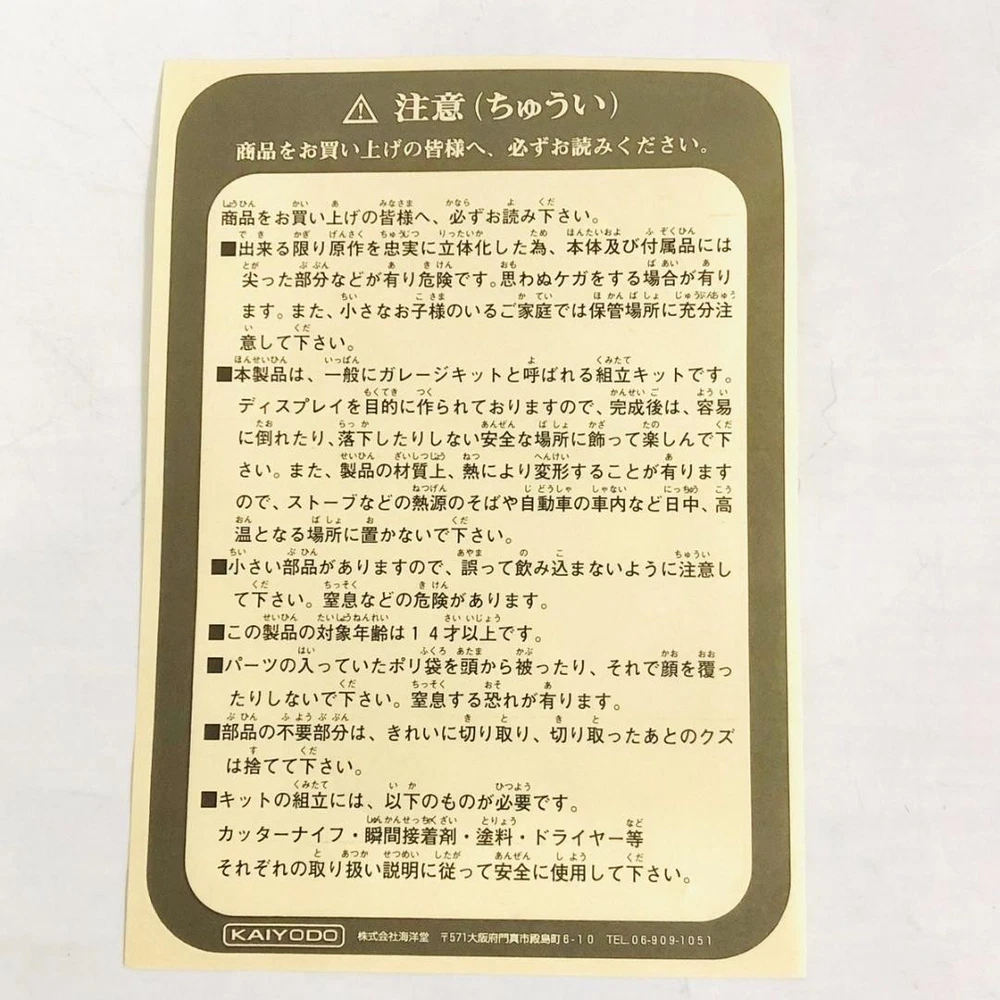 ⚠ 注意(ちゅうい)
商品をお買い上げの皆様へ、必ずお読みください。
商品をお買い上げの皆様へ、必ずお読み下さい。
■出来る限り原作を忠実に立体化した為、本体及び付属品には
尖った部分などが有り危険です。思わぬケガをする場合が有り
ます。また、小さなお子様のいるご家庭では保管場所に充分注
意して下さい。
■本製品は、一般にガレージキットと呼ばれる組立キットです。
ディスプレイを目的に作られておりますので、完成後は、容易
に倒れたり、落下したりしない安全な場所に飾って楽しんで下
さい。また、製品の材質上、熱により変形することが有ります
ので、ストーブなどの熱源のそばや自動車の車内など日中、高
温となる場所に置かないで下さい。
■小さい部品がありますので、誤って飲み込まないように注意し
て下さい。窒息などの危険があります。
■この製品の対象年齢は14才以上です。
■パーツの入っていたポリ袋を頭から被ったり、それで顔を覆っ
たりしないで下さい。窒息する恐れが有ります。
■部品の不要部分は、きれいに切り取り、切り取ったあとのクズ
は捨てて下さい。
■キットの組立には、以下のものが必要です。
カッターナイフ・瞬間接着剤・塗料・ドライヤー等
それぞれの取り扱い説明に従って安全に使用して下さい。
KAIYODO 株式会社海洋堂 〒571大阪府門真市殿島町6-10 TEL.06-909-1051